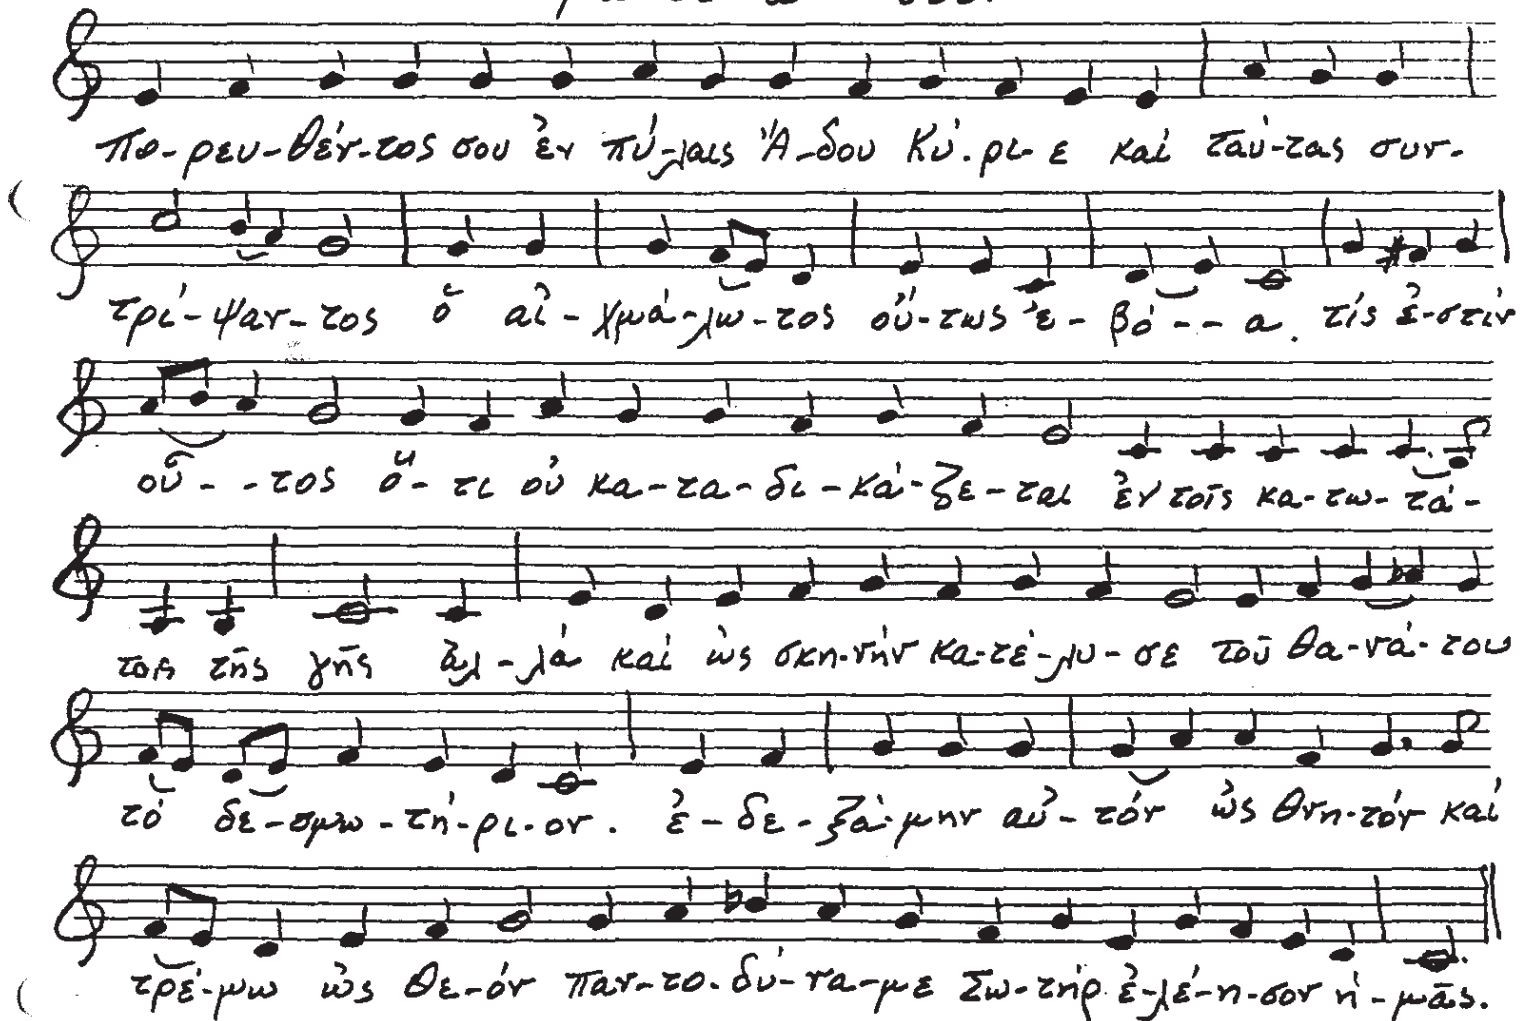 Πο-ρευ-θέν-τος σου ἐν πύ-λαις Ἅ-δου Κύ-ρι-ε καί ταύ-τας συν-
τρί-ψαν-τος ὁ αἰ-χμά-λω-τος οὕ-τως ἐ-βό--α. τίς ἐ-στίν
οὗ--τος ὅ-τι οὐ κα-τα-δι-κά-ζε-ται ἐν τοῖς κα-τω-τά-
τοις τῆς γῆς ἀλ-λά καί ὡς σκη-νήν κα-τέ-λυ-σε τοῦ θα-νά-του
τό δε-σμω-τή-ρι-ον. ἐ-δε-ξά-μην αὐ-τόν ὡς θνη-τόν καί
τρέ-μω ὡς Θε-όν παν-το-δύ-να-με Σω-τήρ ἐ-λέ-η-σον ἡ-μᾶς.